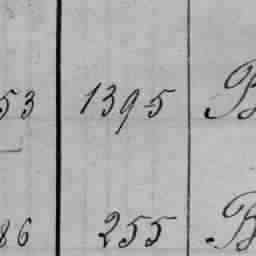 53 1395 B
86 255 B